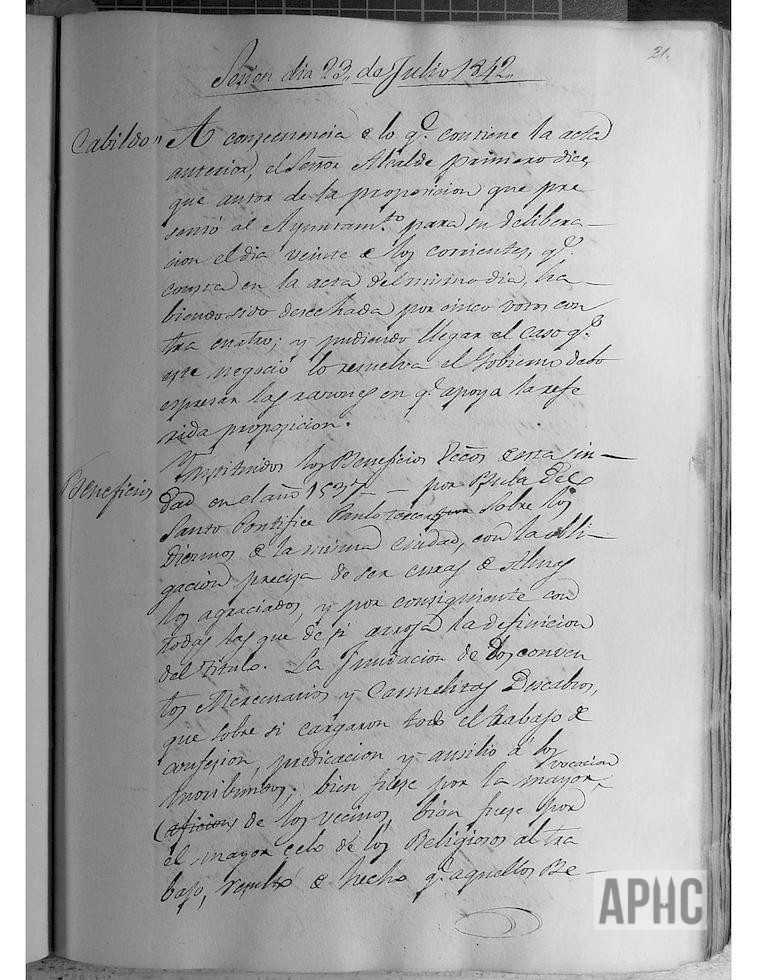 21.
Sesion dia 23,, de Julio 1842,,
Cabildo,, A consecuencia de lo q.e contiene la acta
anterior, el Señor Alcalde primero dice,
que autor de la proposicion que pre
sentó al Ayuntam.to para su delibera—
cion el dia veinte de los corrientes, q.e
consta en la acta del mismo dia, ha—
biendo sido desechada por cinco votos con
tra cuatro; y pudiendo llegar el caso q.e
este negocio lo resuelva el Gobierno debo
espresar las razones en q.e apoya la refe
rida proposicion.
Beneficios Instituidos los Beneficios Eccos de esta ciu—
dad en el año 1537— por Bula del
Santo Pontifice Paulo tercero sobre los
Diezmos de la misma ciudad, con la obli—
gacion precisa de ser curas de Almas
los agraciados, y por consiguiente con
todas las que de si arroja la definicion
del titulo. La fundacion de los conven
tos Mercenarios y Carmelitas Descalzos,
que sobre si cargaron todo el trabajo de
confesion, predicacion y ausilio à los
moribundos; bien fuese por la mayor,
vocacion
(aficion) de los vecinos, bien fuese por
el mayor celo de los Religiosos al tra
bajo, resultó de hecho q.e aquellos Be—
APHC